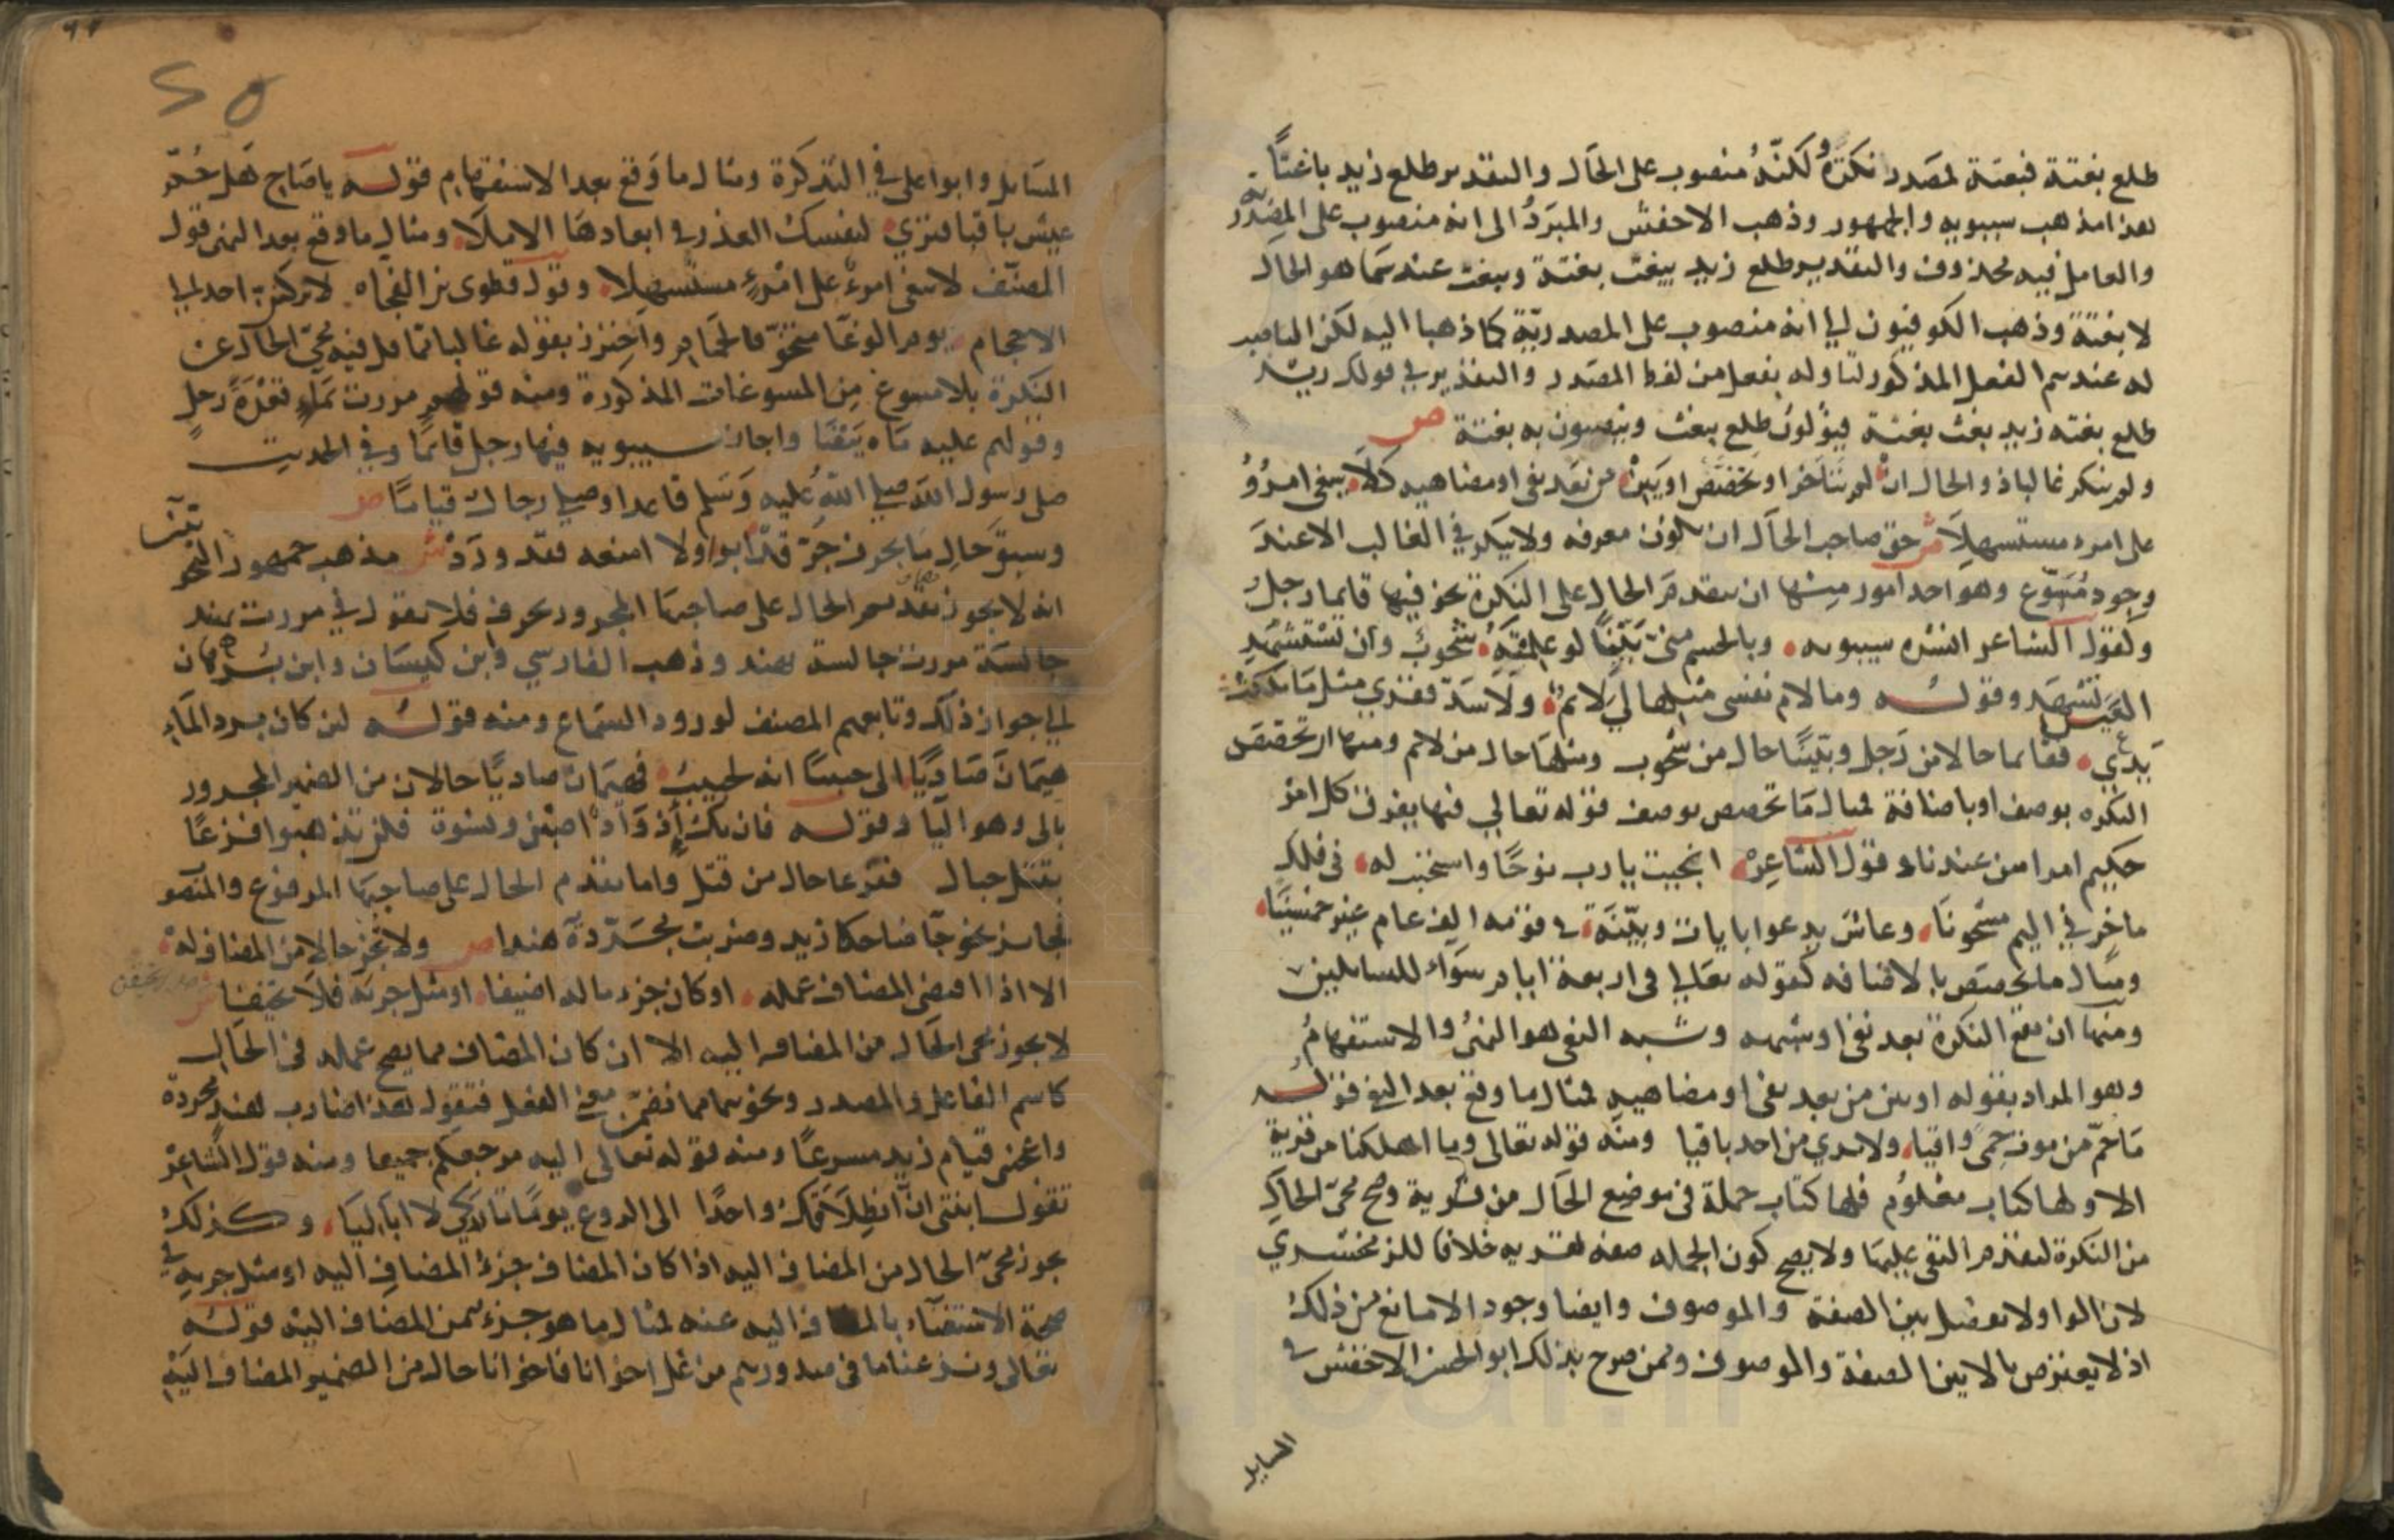 طلع بغتة فبغتة لمصدر نكرة ولكنه منصوب على الحال والتقدير طلع زيد باغتا
هذا مذهب سيبويه والجمهور وذهب الاخفش والمبرد الى انه منصوب على المصدرية
والعامل فيه محذوف والتقدير طلع زيد يبغت بغتة ويبغت عندهما هو الحال
لا بغتة وذهب الكوفيون الى انه منصوب على المصدرية كما ذهبا اليه لكن الناصب
له عندهم الفعل المذكور لتاوله بفعل من لفظ المصدر والتقدير في قولك زيد
طلع بغتة زيد بغت بغتة فيؤلون طلع ببغت وينصبون به بغتة ص
ولم ينكر غالبا ذو الحال ان لم يتاخر او يخصص او يبن من بعد نفي او مضاهيه كلا يبغي امرؤ
على امرء مستسهلا ش حق صاحب الحال ان يكون معرفه ولا ينكر في الغالب الا عند
وجود مسوغ وهو احد امور منها ان يتقدم الحال على النكرة نحو فيها قايما رجل
وكقول الشاعر انشده سيبويه وبالجسم مني بينا لو علمته شحوب وان تستشهدي
العين تشهد وقوله وما لام نفسي مثلها لي لائم ولا سد فقري مثل ما ملكت
يدي فقايما حال من رجل وبينا حال من شحوب ومثلها حال من لائم ومنها ان تخصص
النكره بوصف او باضافة فمثال ما تخصص بوصف قوله تعالى فيها يفرق كل امر
حكيم امرا من عندنا وقول الشاعر نجيت يا رب نوحا واستجبت له في فلك
ماخر في اليم مشحونا وعاش يدعوا بايات وبينة في قومه الف عام غير خمسينا
ومثال ما يخصص بالاضافه كقوله تعالى في اربعة ايام سواء للسايلين
ومنها ان تقع النكرة بعد نفي او شبهه وشبه النفي هو النهي والاستفهام
وهو المراد بقوله او يبن من بعد نفي او مضاهيه فمثال ما وقع بعد النفي قوله
ما حم من موت حمى واقيا ولا ترى من احد باقيا ومنه قوله تعالى وما اهلكنا من قرية
الا ولها كتاب معلوم فلها كتاب جملة في موضع الحال من قرية وصح مجئ الحال
من النكرة لتقدم النفي عليها ولا يصح كون الجمله صفه لقريه خلافا للزمخشري
لان الواو لا تفصل بين الصفة والموصوف وايضا وجود الا مانع من ذلك
اذ لا يعترض بالا بين الصفة والموصوف وممن صرح بذلك ابو الحسن الاخفش في
المسايل
المسايل وابو علي في التذكرة ومثال ما وقع بعد الاستفهام قوله يا صاح هل حم
عيش باقيا فترى لنفسك العذر في ابعادها الاملا ومثال ما وقع بعد النهي قول
المصنف لا يبغي امرؤ على امرئ مستسهلا وقول قطري بن الفجاه لا يركنن احد الى
الاحجام يوم الوغا متخوفا لحمام واحترز بقوله غالبا مما قل فيه مجئ الحال من
النكرة بلا مسوغ من المسوغات المذكورة ومنه قولهم مررت بماء قعدة رجل
وقولهم عليه ماه بيضا واجاز سيبويه فيها رجل قائما وفي الحديث
صلى رسول الله صلى الله عليه وسلم قاعدا وصلى رجال قياما ص
وسبق حال ما بحرف جر قد ابوا ولا امنعه فقد ورد ش مذهب جمهور النحويين
انه لا يجوز تقديم الحال على صاحبها المجرور بحرف فلا تقول في مررت بهند
جالسة مررت جالسة بهند وذهب الفارسي وابن كيسان وابن برهان
الى جواز ذلك وتابعهم المصنف لورود السماع ومنه قوله لئن كان برد الماء
هيمان صاديا الى حبيبا انه لحبيب فهيمان صاديا حالان من الضمير المجرور
بالى وهو اليا وقوله فان تك اذواد اصبن ونسوة فلن تذهبوا فرغا
بقتل حبال ففرغا حال من قتل واما تقدم الحال على صاحبها المرفوع والمنصوب
فجايز نحو جا ضاحكا زيد وضربت مجردة هندا ص ولا تجز حالا من المضاف له
الا اذا اقتضى المضاف عمله او كان جزء ما له اضيفا او مثل جزيه فلا تحيفا ش
لا يجوز مجئ الحال من المضاف اليه الا ان كان المضاف مما يصح عمله في الحال
كاسم الفاعل والمصدر ونحوهما مما تضمن معنى الفعل فتقول هذا ضارب هند مجردة
واعجبني قيام زيد مسرعا ومنه قوله تعالى اليه مرجعكم جميعا ومنه قول الشاعر
تقول ابنتي ان انطلاقك واحدا الى الروع يوما تاركي لا ابا ليا وكذلك
يجوز مجئ الحال من المضاف اليه اذا كان المضاف جزء المضاف اليه او مثل جزيه في
صحة الاستغناء بالمضاف اليه عنه فمثال ما هو جزء من المضاف اليه قوله
تعالى ونزعنا ما في صدورهم من غل اخوانا فاخوانا حال من الضمير المضاف اليه